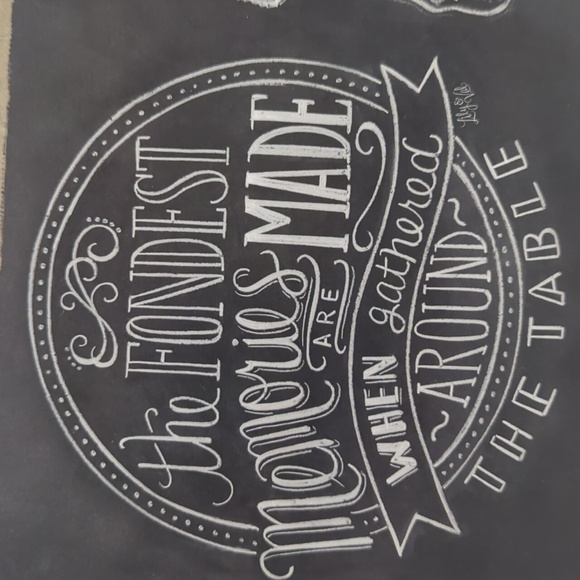 the FONDEST
Memories ARE MADE
WHEN gathered
~AROUND~
THE TABLE
Lily & Val